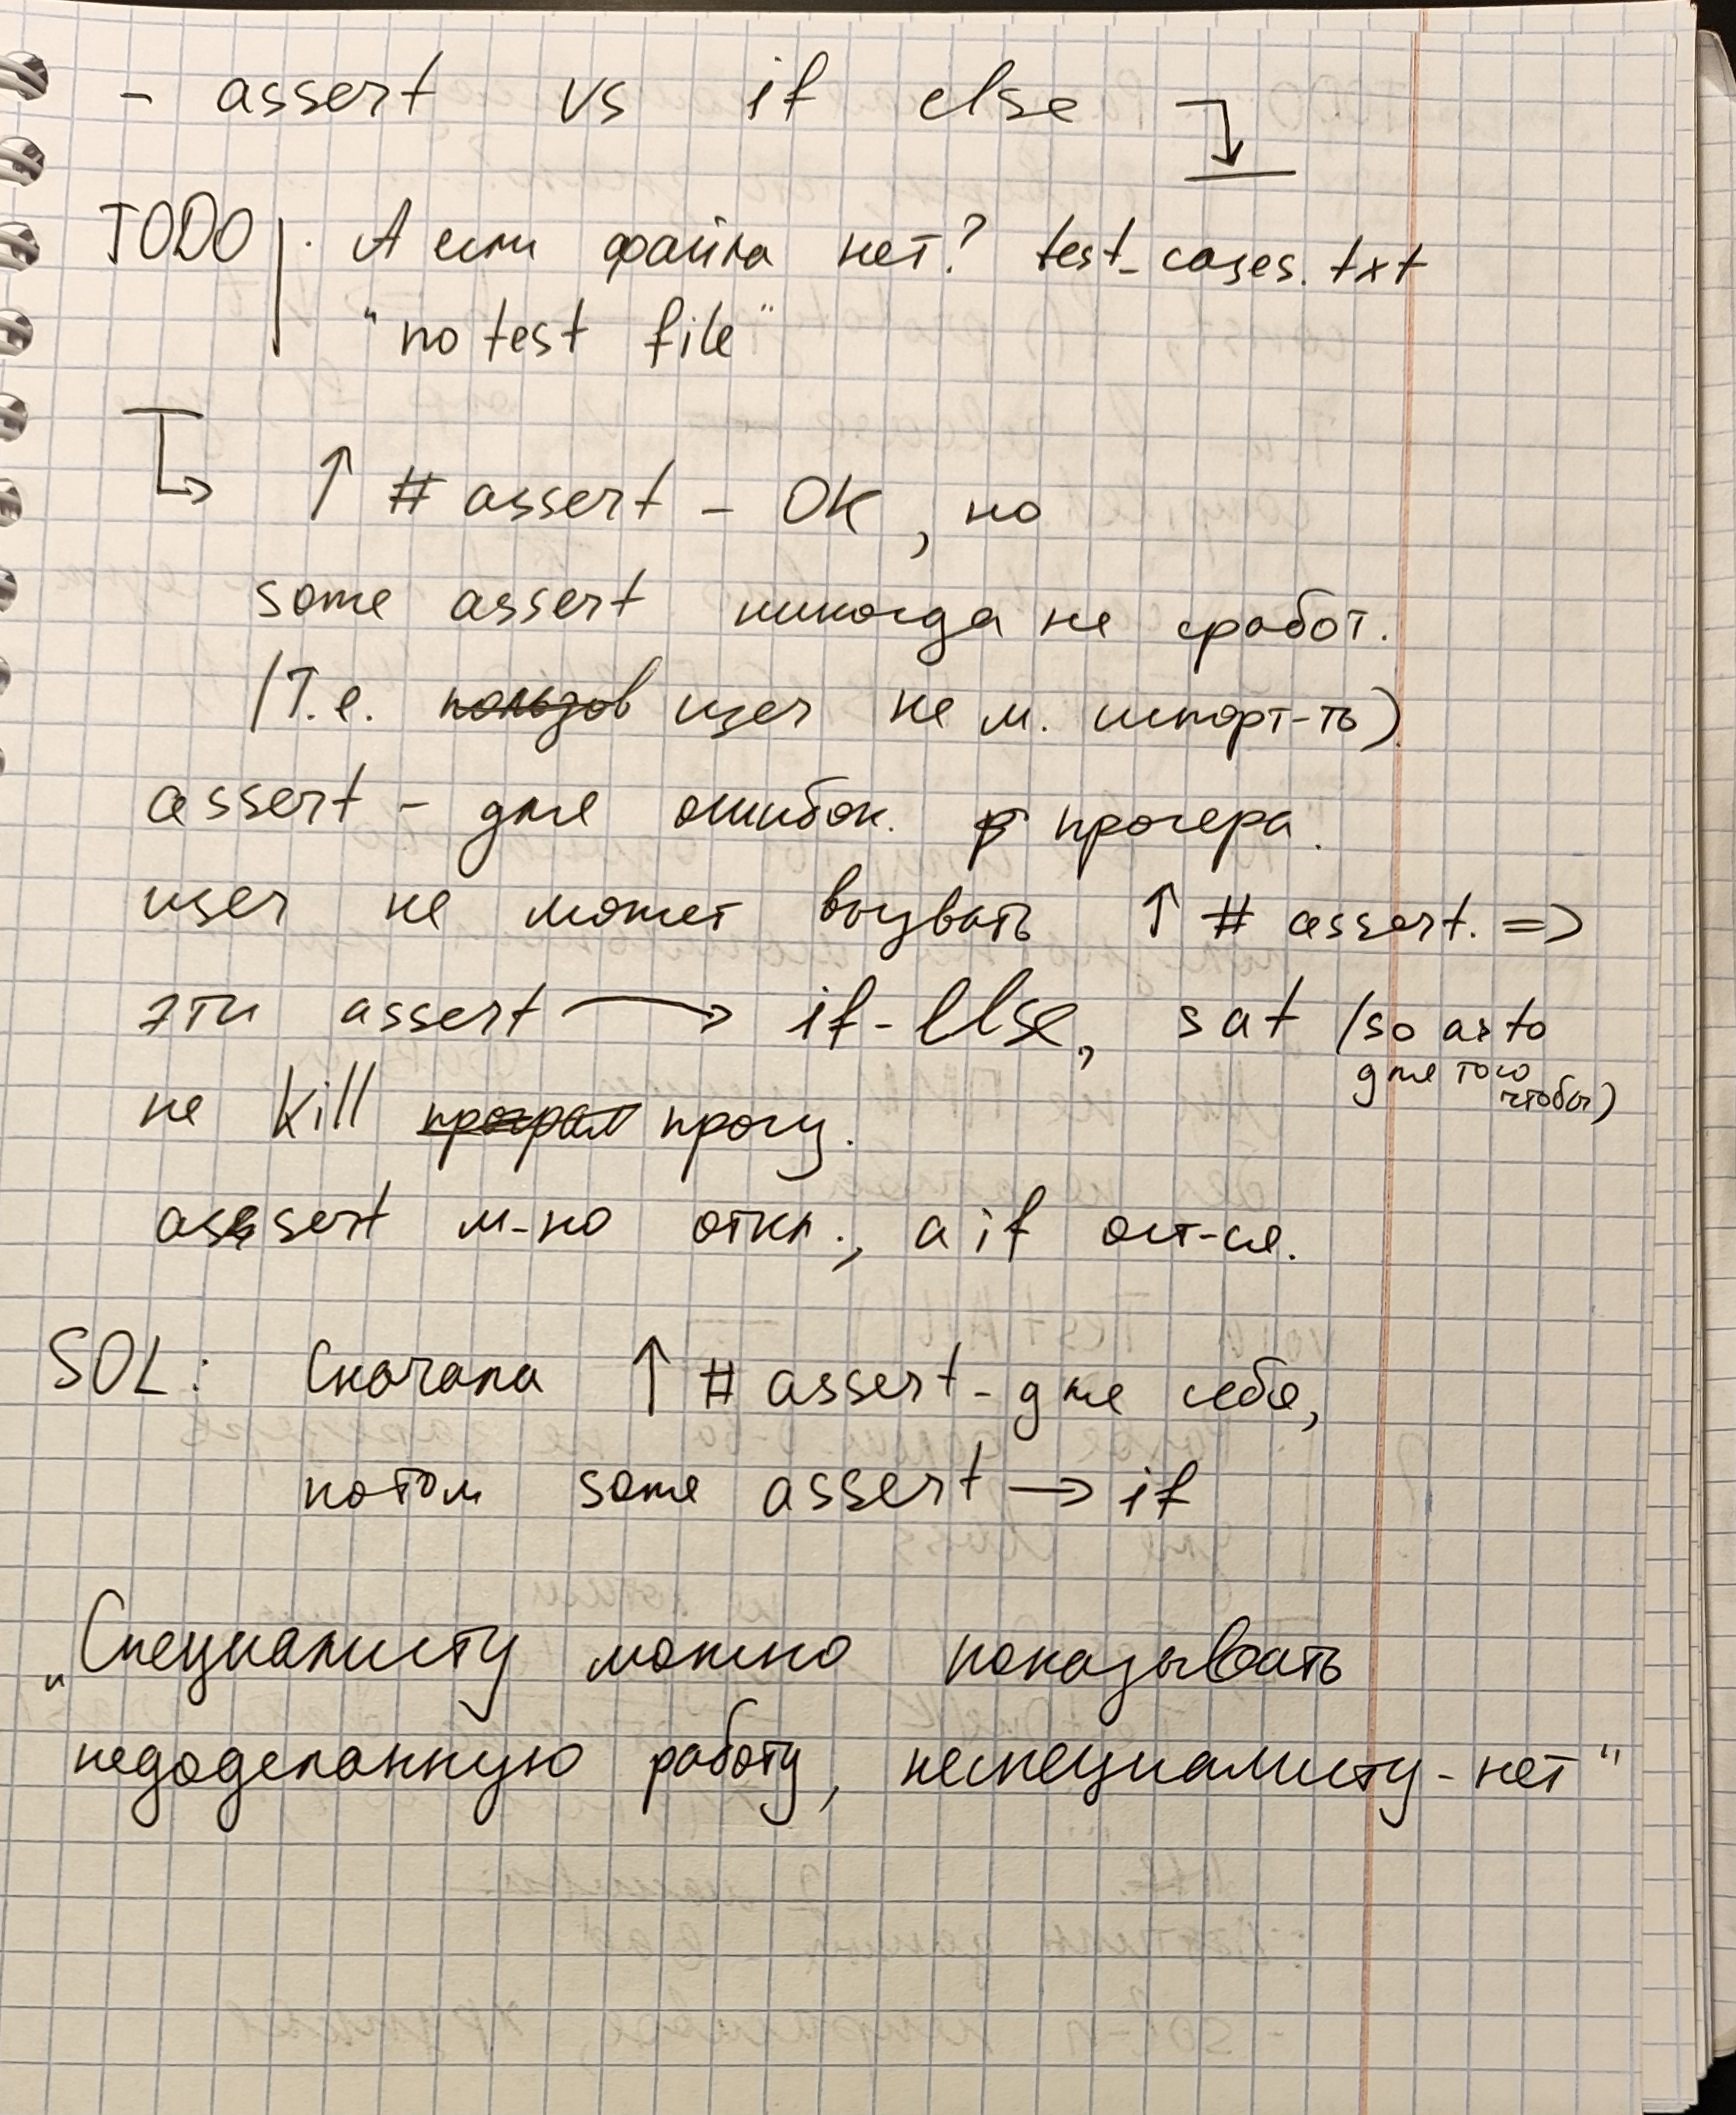 - assert vs if else
TODO | · А если файла нет? test_cases.txt
"no test file"
↑ # assert - OK, но
some assert никогда не сработ.
(Т.е. user не м. импорт-ть)
assert - для ошибок. прогера.
user не может вызвать ↑ # assert. =>
эти assert → if-else, sat (so as to
для того
чтобы)
не kill прогу.
assert м-но откл., а if ост-ся.
SOL: Сначала ↑ # assert - для себя,
потом some assert → if
„Специалисту можно показывать
недоделанную работу, неспециалисту - нет"